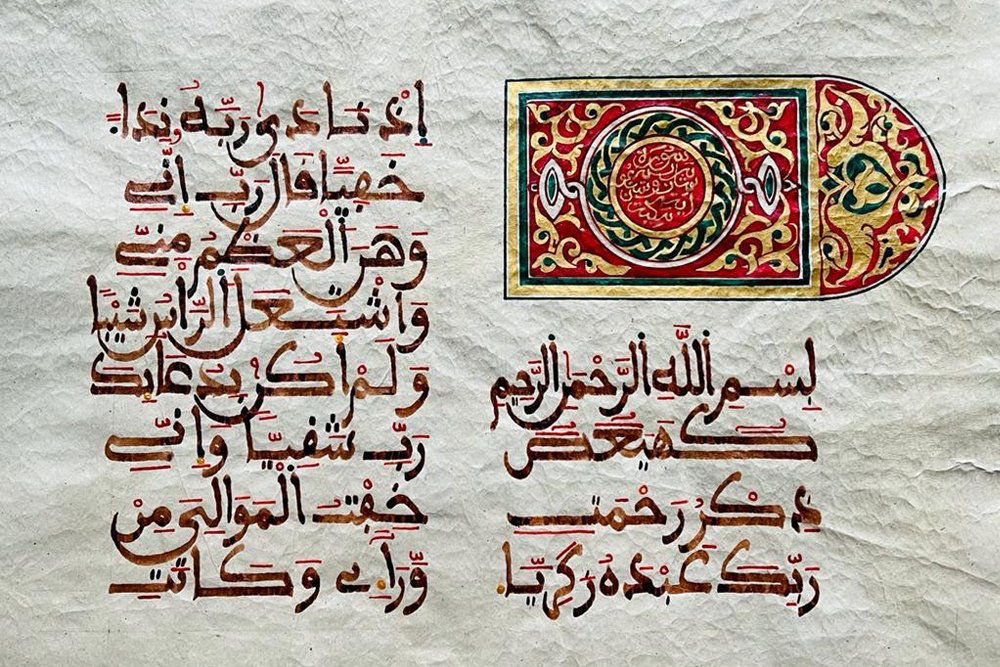 سورة
بِسْمِ اِ۬للَّهِ اِ۬لرَّحْمَٰنِ اِ۬لرَّحِيمِ
كَهيعص
ذِكْرُ رَحْمَتِ
رَبِّكَ عَبْدَهُ زَكَرِيَّا
إِذْ نَادَىٰ رَبَّهُ نِدَاءً
خَفِيّاً قَالَ رَبِّ إِنِّي
وَهَنَ اَ۬لْعَظْمُ مِنِّي
وَاشْتَعَلَ اَ۬لرَّأْسُ شَيْباً
وَلَمْ أَكُنْ بِدُعَائِكَ
رَبِّ شَقِيّاً وَإِنِّي
خِفْتُ اُ۬لْمَوَالِيَ مِنْ
وَّرَاءِي وَكَانَتِ